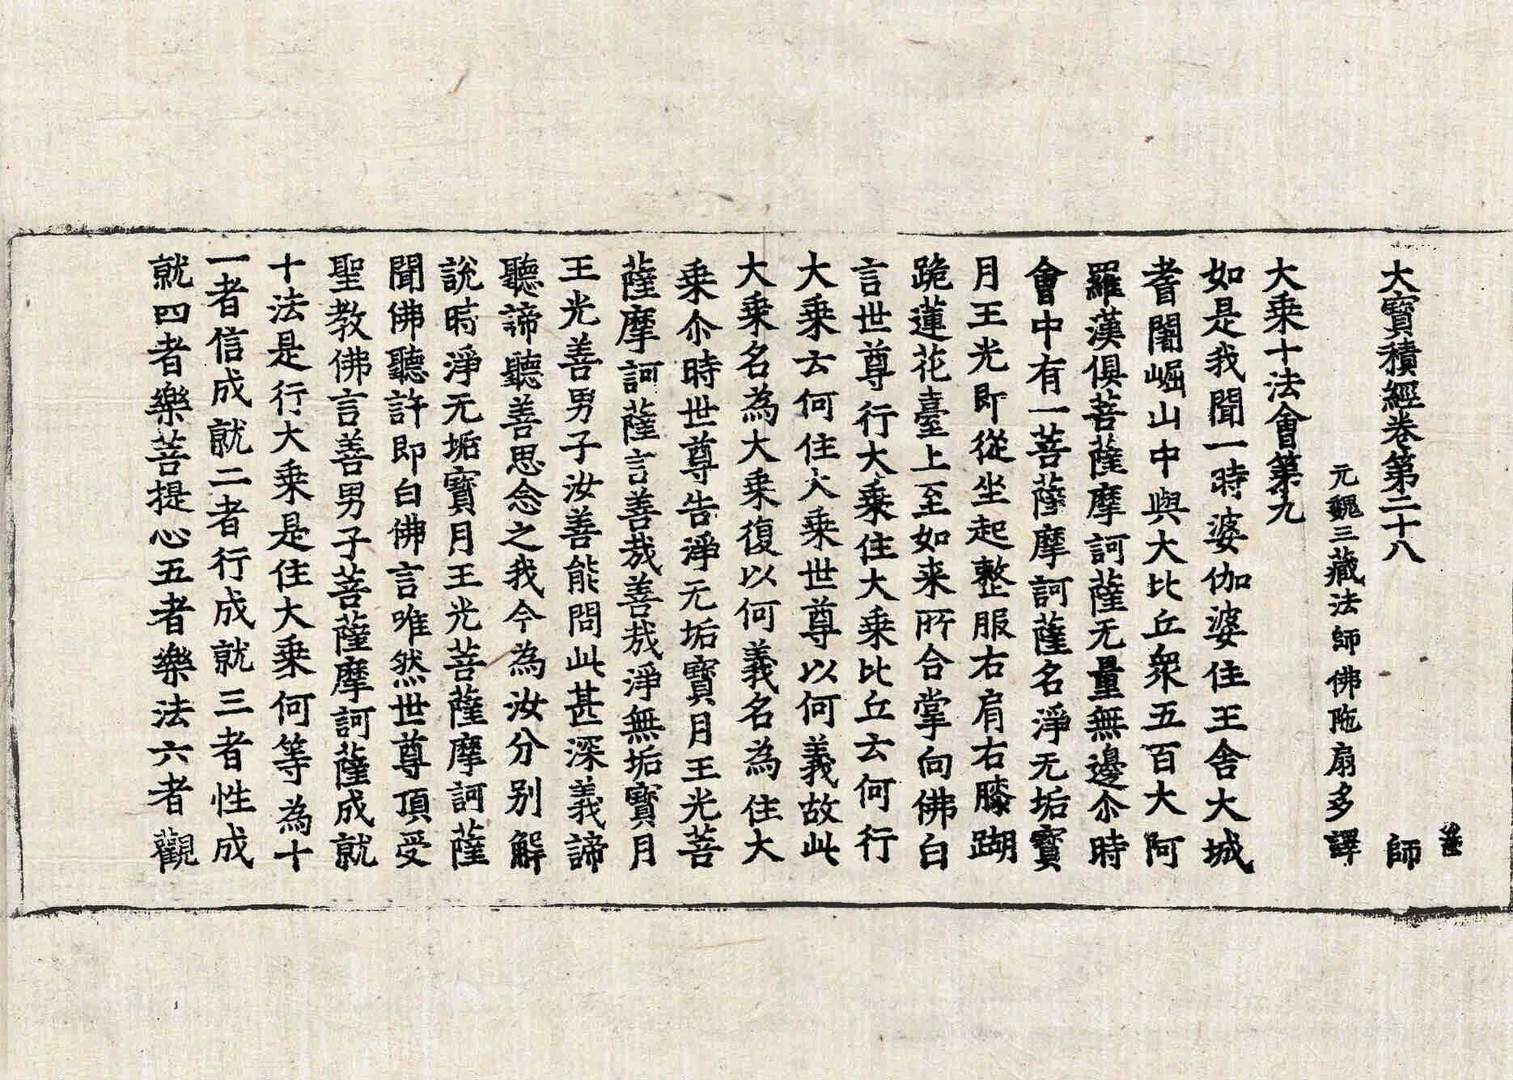 大寶積經卷第二十八 師
元魏三藏法師佛陁扇多譯
大乗十法會第九
如是我聞一時婆伽婆住王舎大城
耆闍崛山中與大比丘衆五百大阿
羅漢俱菩薩摩訶薩无量無邊尒時
會中有一菩薩摩訶薩名淨无垢寶
月王光即從坐起整服右肩右膝蹋
跪蓮花臺上至如来所合掌向佛白
言世尊行大乗住大乗比丘云何行
大乗云何住大乗世尊以何義故此
大乗名為大乗復以何義名為住大
乗尒時世尊告淨无垢寶月王光菩
薩摩訶薩言善㢤善㢤淨無垢寶月
王光善男子汝善能問此甚深義諦
聽諦聽善思念之我今為汝分别解
說時淨无垢寶月王光菩薩摩訶薩
聞佛聽許即白佛言唯然世尊頂受
聖教佛言善男子菩薩摩訶薩成就
十法是行大乗是住大乗何等為十
一者信成就二者行成就三者性成
就四者樂菩提心五者樂法六者觀